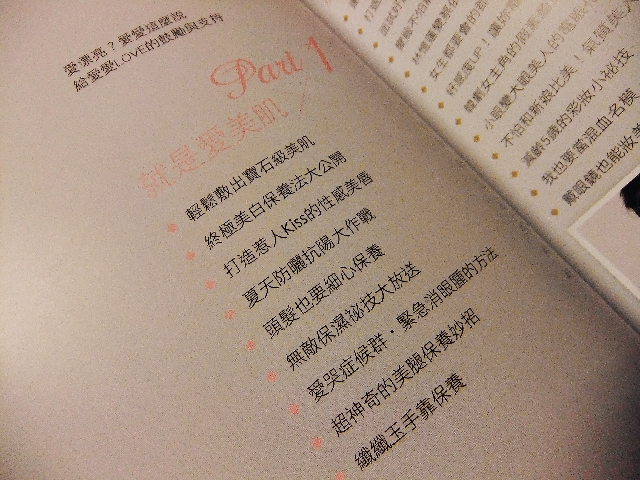 愛漂亮？愛愛這麼說
給愛愛LOVE的鼓勵與支持
Part 1
就是愛美肌
輕鬆敷出寶石級美肌
終極美白保養法大公開
打造惹人Kiss的性感美唇
夏天防曬抗陽大作戰
頭髮也要細心保養
無敵保濕祕技大放送
愛哭症候群．緊急消眼腫的方法
超神奇的美腿保養妙招
纖纖玉手靠保養
小眼變大眼美人的
不怕和新娘比美！氣質美
減齡5歲的彩妝小祕技
我也要當混血名模
戴眼鏡也能妝美